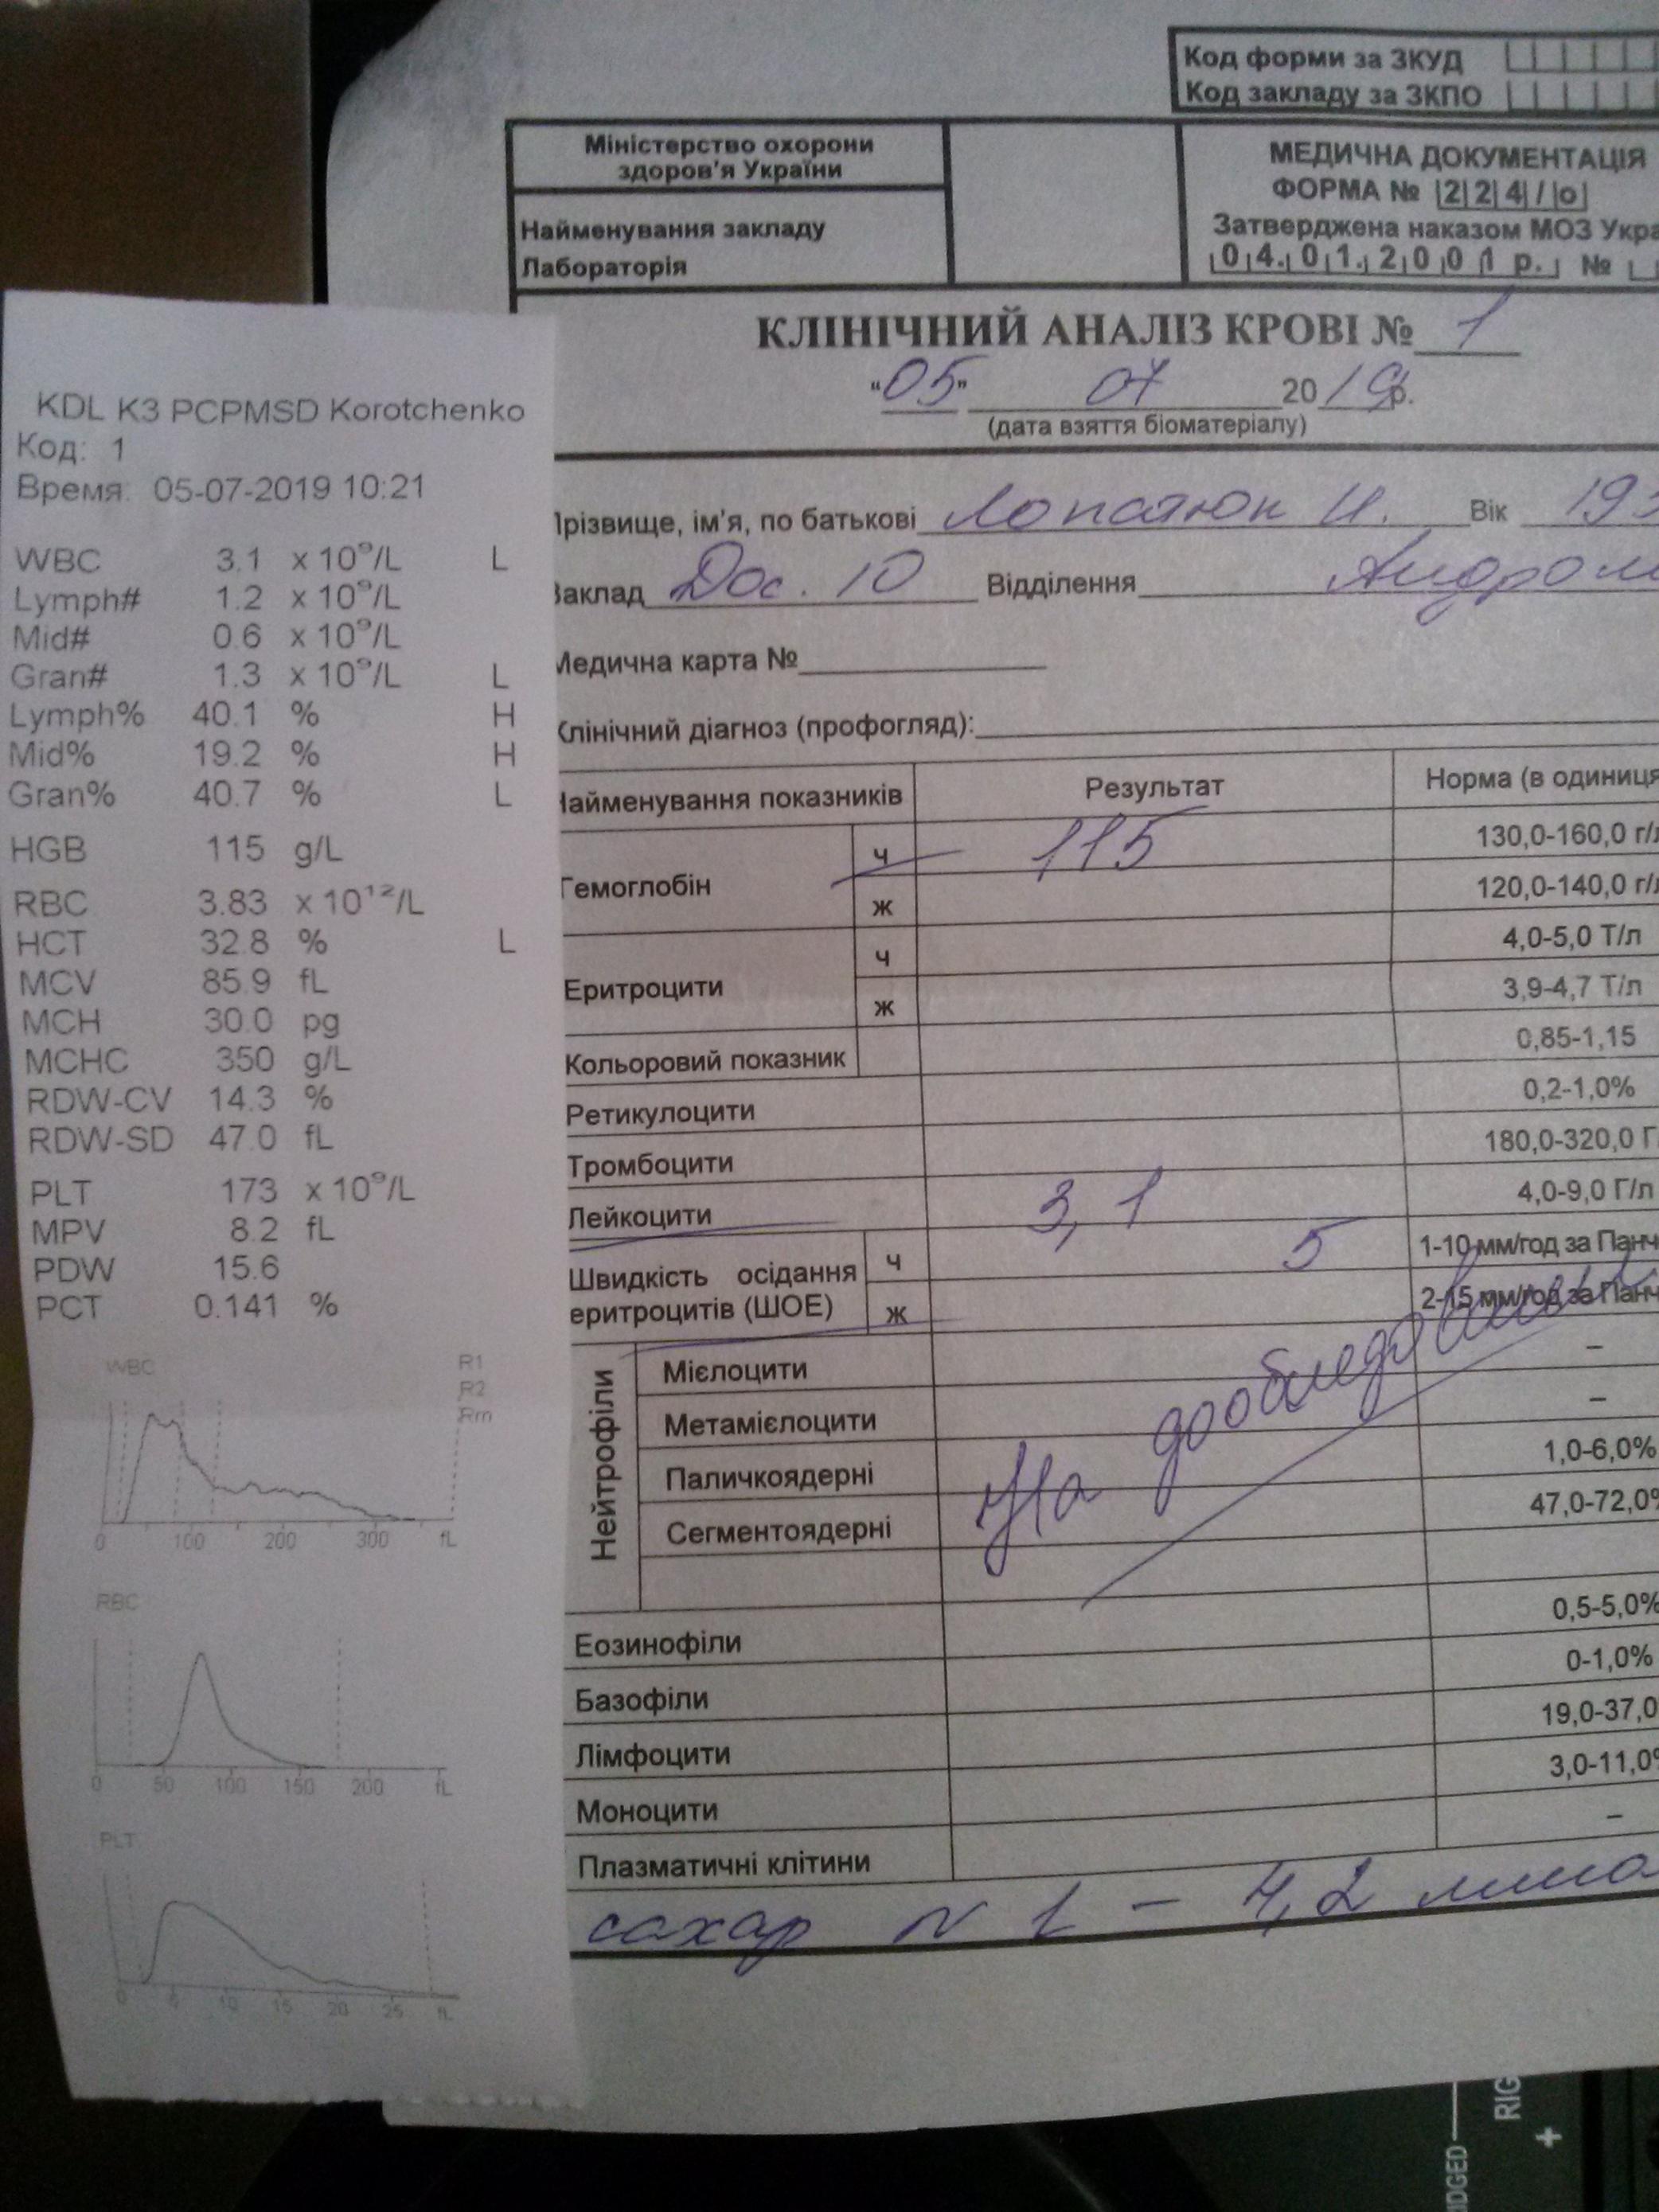 KDL K3 PCPMSD Korotchenko
Код: 1
Время: 05-07-2019 10:21
WBC 3.1 x 10⁹/L L
Lymph# 1.2 x 10⁹/L
Mid# 0.6 x 10⁹/L
Gran# 1.3 x 10⁹/L L
Lymph% 40.1 % H
Mid% 19.2 % H
Gran% 40.7 % L
HGB 115 g/L
RBC 3.83 x 10¹²/L
HCT 32.8 % L
MCV 85.9 fL
MCH 30.0 pg
MCHC 350 g/L
RDW-CV 14.3 %
RDW-SD 47.0 fL
PLT 173 x 10⁹/L
MPV 8.2 fL
PDW 15.6
PCT 0.141 %
WBC R1
R2
Rm
0 100 200 300 fL
RBC
0 50 100 150 200 fL
PLT
0 5 10 15 20 25 fL
Код форми за ЗКУД
Код закладу за ЗКПО
Міністерство охорони
здоров'я України
Найменування закладу
Лабораторія
МЕДИЧНА ДОКУМЕНТАЦІЯ
ФОРМА № 224/о
Затверджена наказом МОЗ Укра
04.01.2001 р. №
КЛІНІЧНИЙ АНАЛІЗ КРОВІ № 1
"05" 07 2019р.
(дата взяття біоматеріалу)
Прізвище, ім'я, по батькові И. Вік 193
Заклад 10 Відділення
Медична карта №
Клінічний діагноз (профогляд):
Найменування показників Результат Норма (в одиниця
Гемоглобін ч 115 130,0-160,0 г/л
ж 120,0-140,0 г/л
Еритроцити ч 4,0-5,0 Т/л
ж 3,9-4,7 Т/л
Кольоровий показник 0,85-1,15
Ретикулоцити 0,2-1,0%
Тромбоцити 180,0-320,0 Г/
Лейкоцити 3,1 4,0-9,0 Г/л
Швидкість осідання ч 5 1-10 мм/год за Панч
еритроцитів (ШОЕ) ж 2-15 мм/год за Панч
Нейтрофіли
Мієлоцити –
Метамієлоцити –
Паличкоядерні 1,0-6,0%
Сегментоядерні 47,0-72,0%
На
Еозинофіли 0,5-5,0%
Базофіли 0-1,0%
Лімфоцити 19,0-37,0
Моноцити 3,0-11,0%
Плазматичні клітини –
сахар N 1 – 4,2 ммо
RIG
IDGED
+